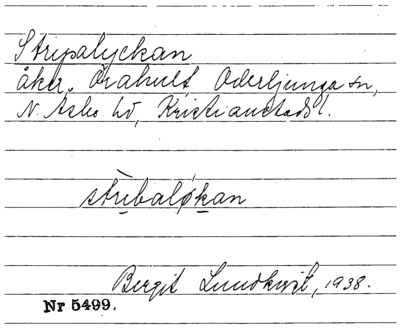 Stripalyckan
åker, Örahult, Oderljunga sn,
N. Åsbo hd, Kristianstads l.
stribaløkan
Bergit Lundkvist, 1938.
Nr 5499.